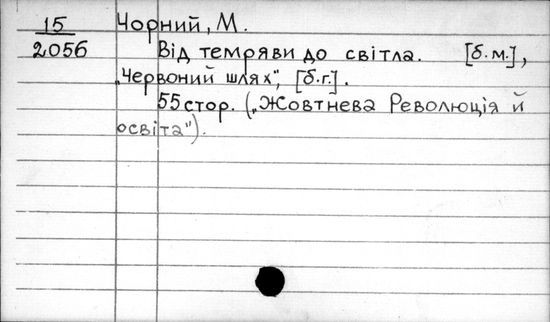 15 Чорний, М.
2056 Від темряви до світла. [б.м.],
„Червоний шлях", [б.г.].
55 стор. („Жовтнева Революція й
освіта").